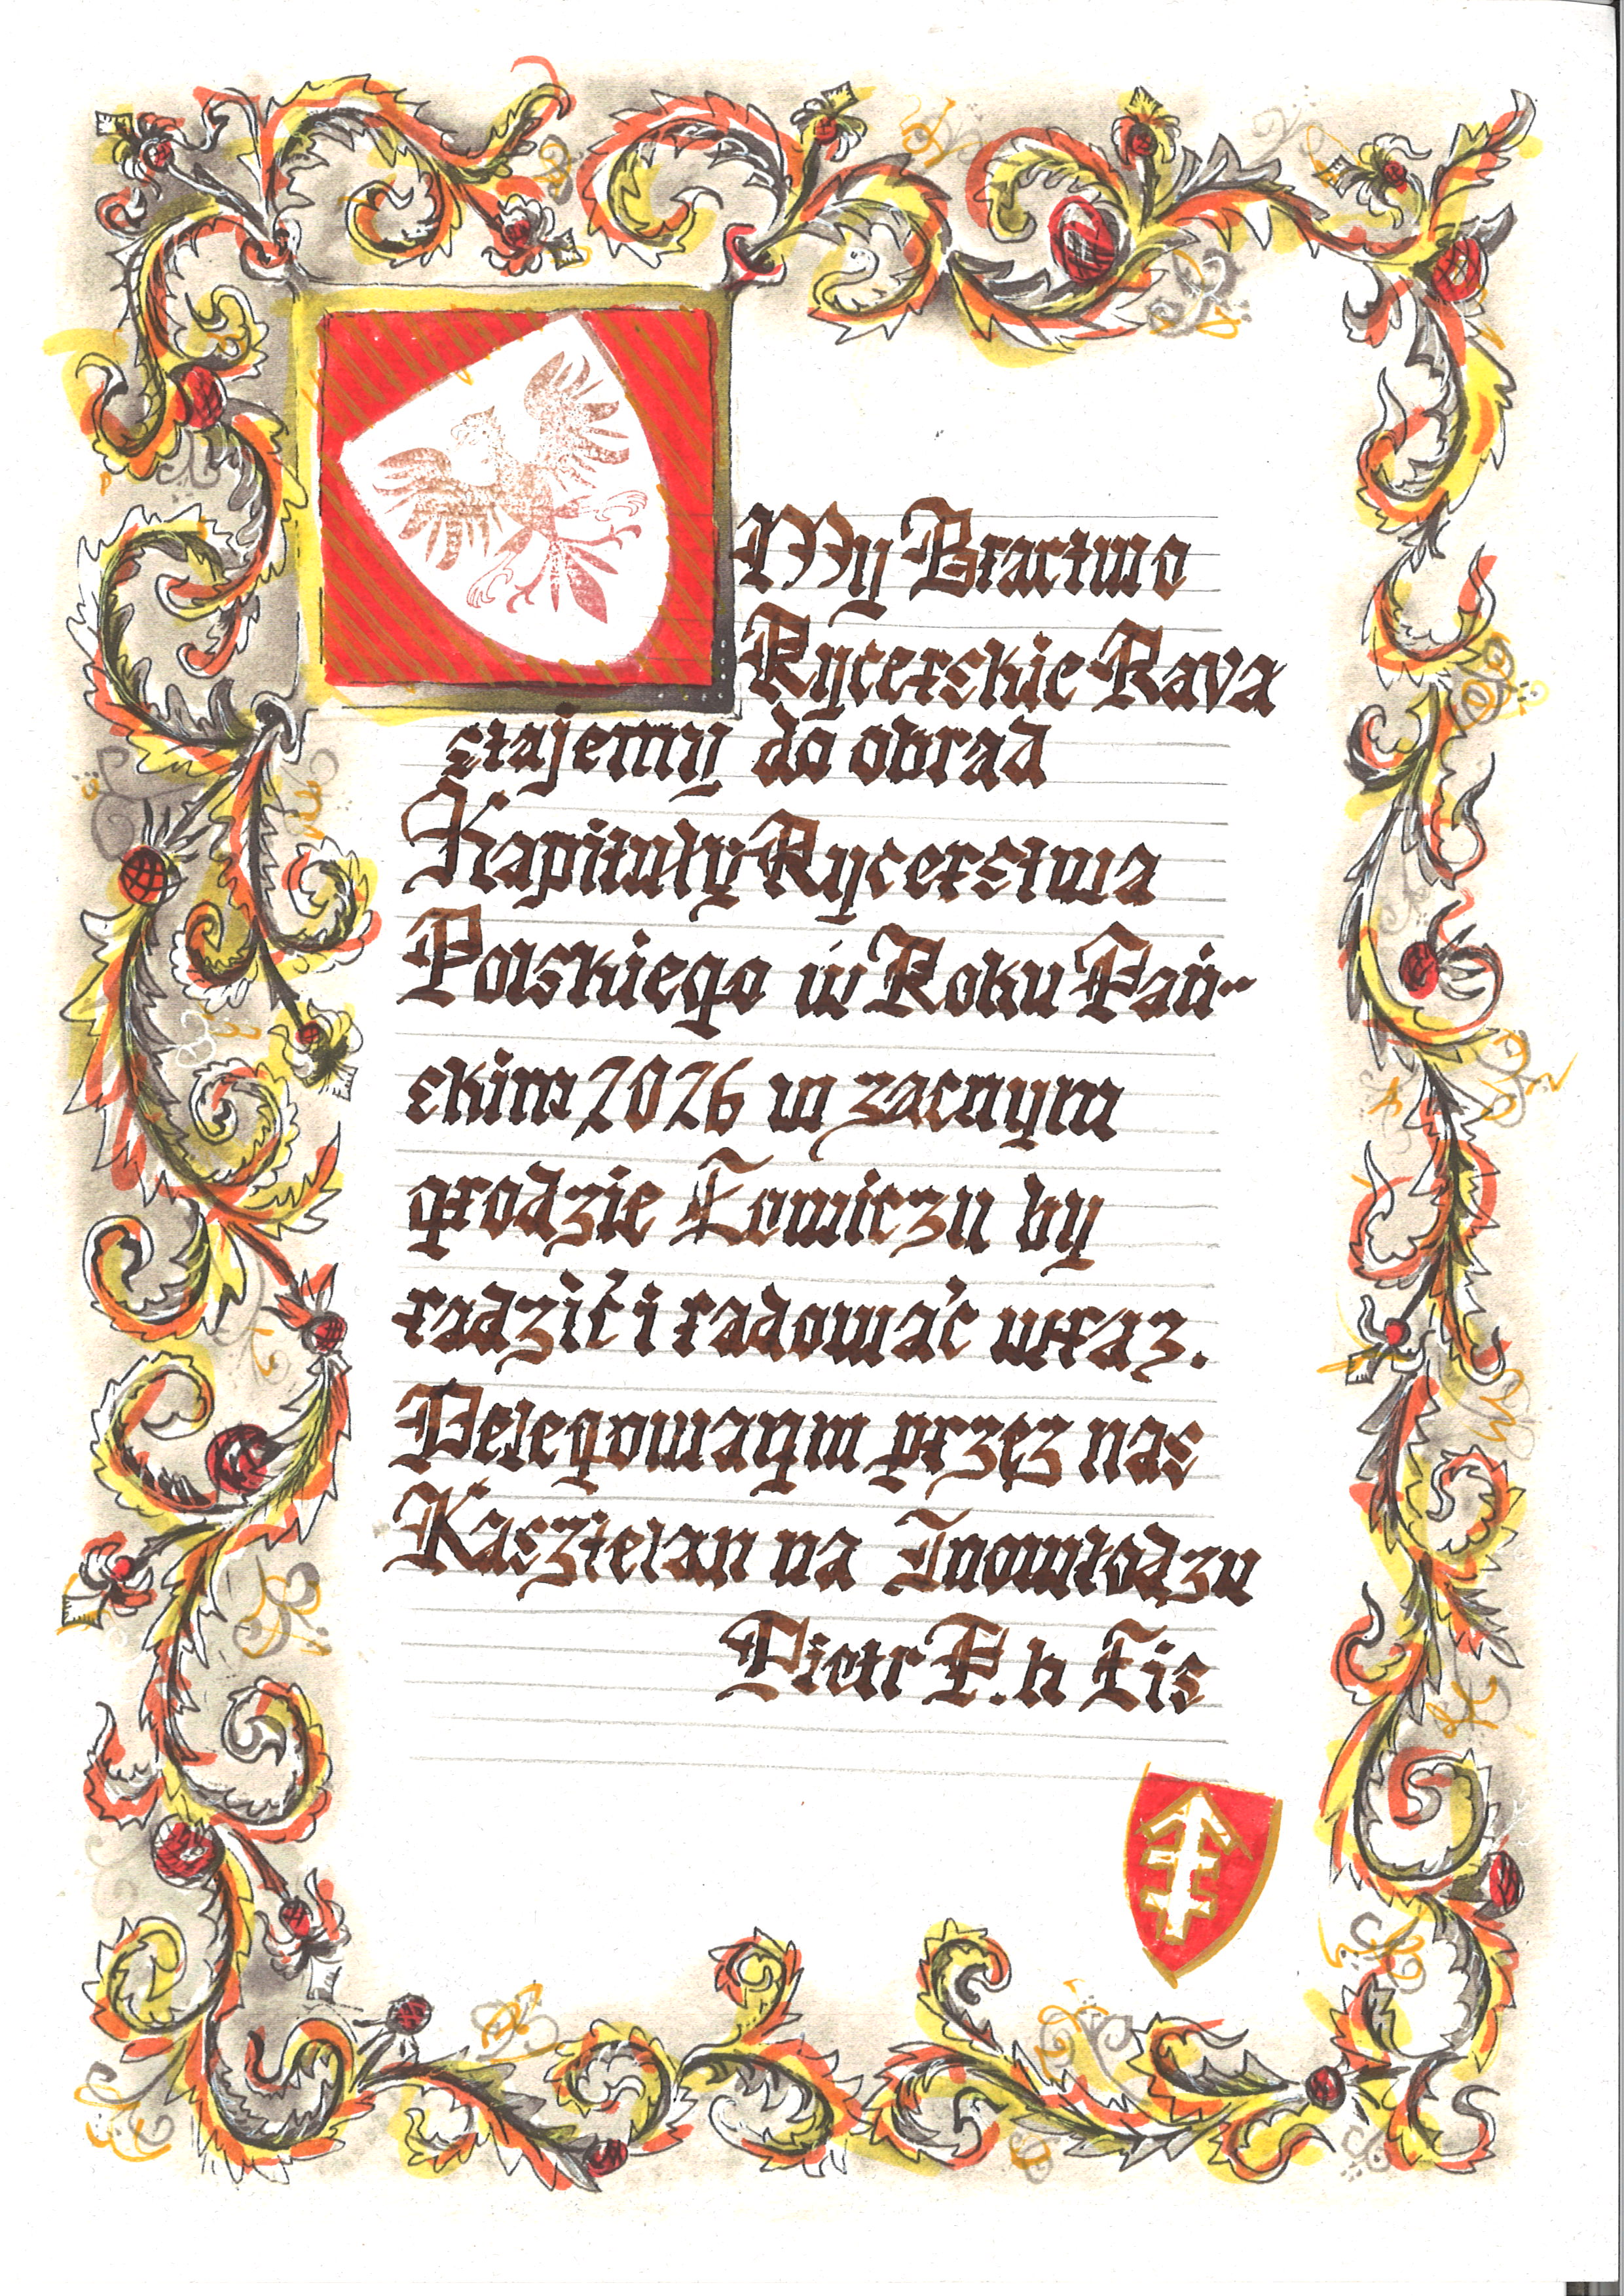 My Bractwo
Rycerskie Rava
stajemy do obrad
Kapituły Rycerstwa
Polskiego w Roku Pań-
skim 2026 w zacnym
grodzie Łowiczu by
radzić i radować wraz.
Delegowanym przez nas
Kasztelan na Inowłodzu
Piotr P. h Lis